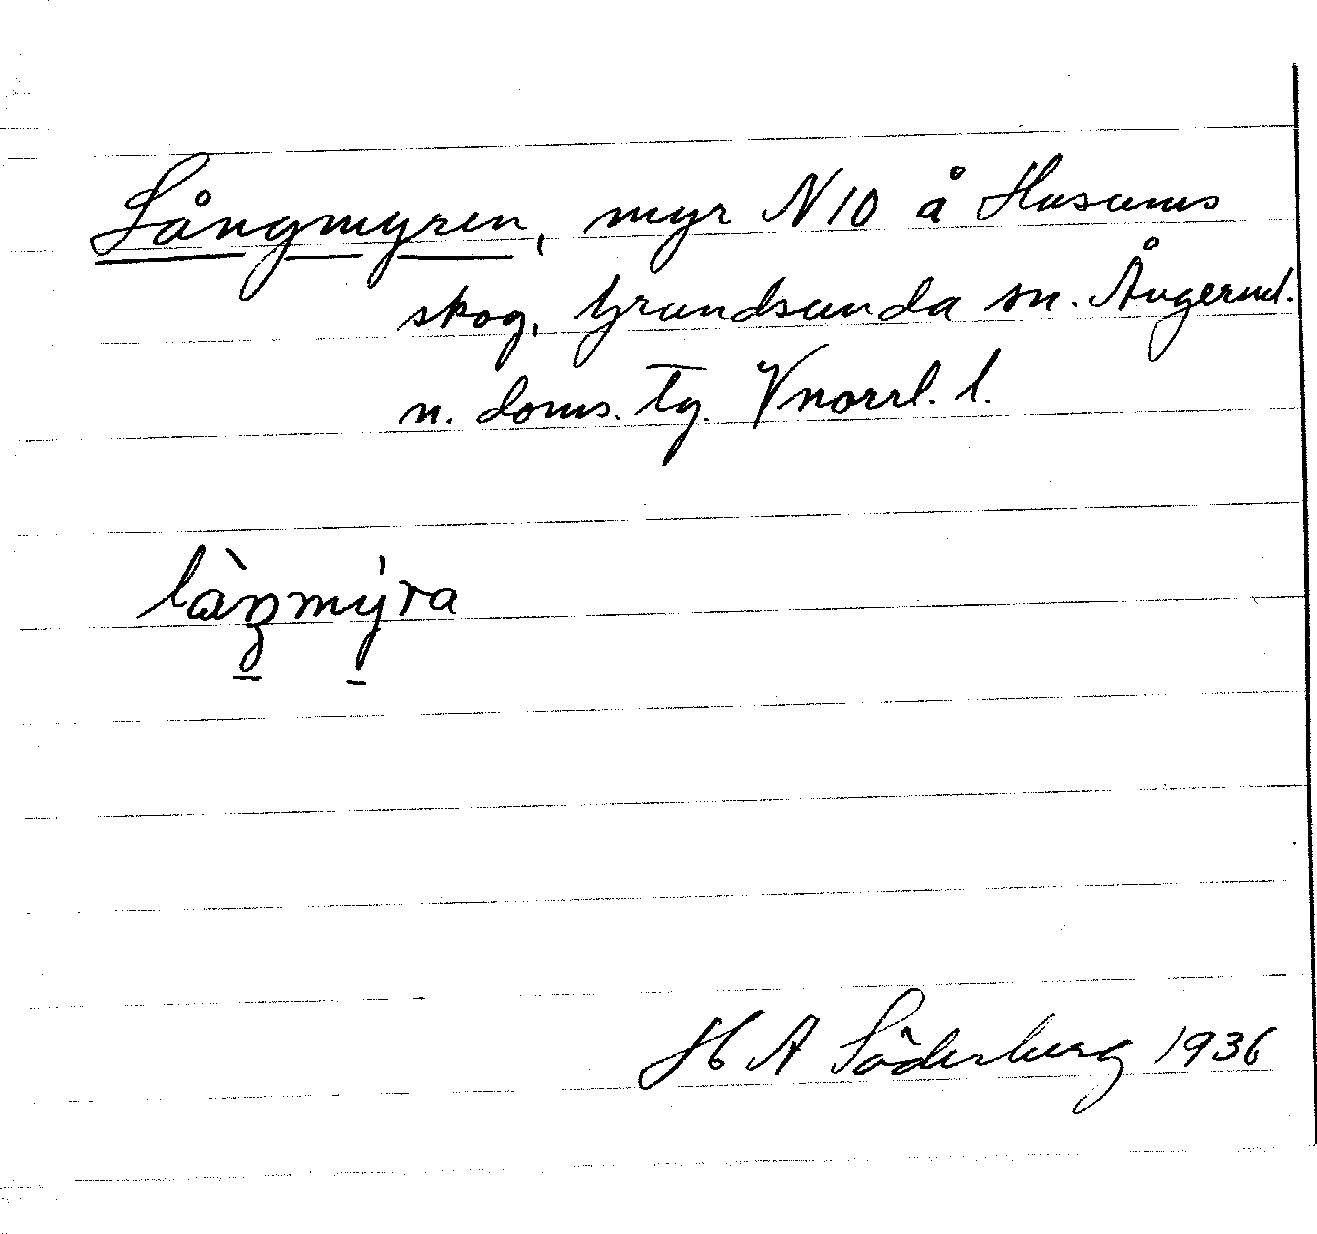 Långmyren, myr N 10 å Husums
skog, Grundsunda sn. Ångerml.
n. doms. tg. Vnorrl. l.
làŋmýra
H A Söderberg 1936